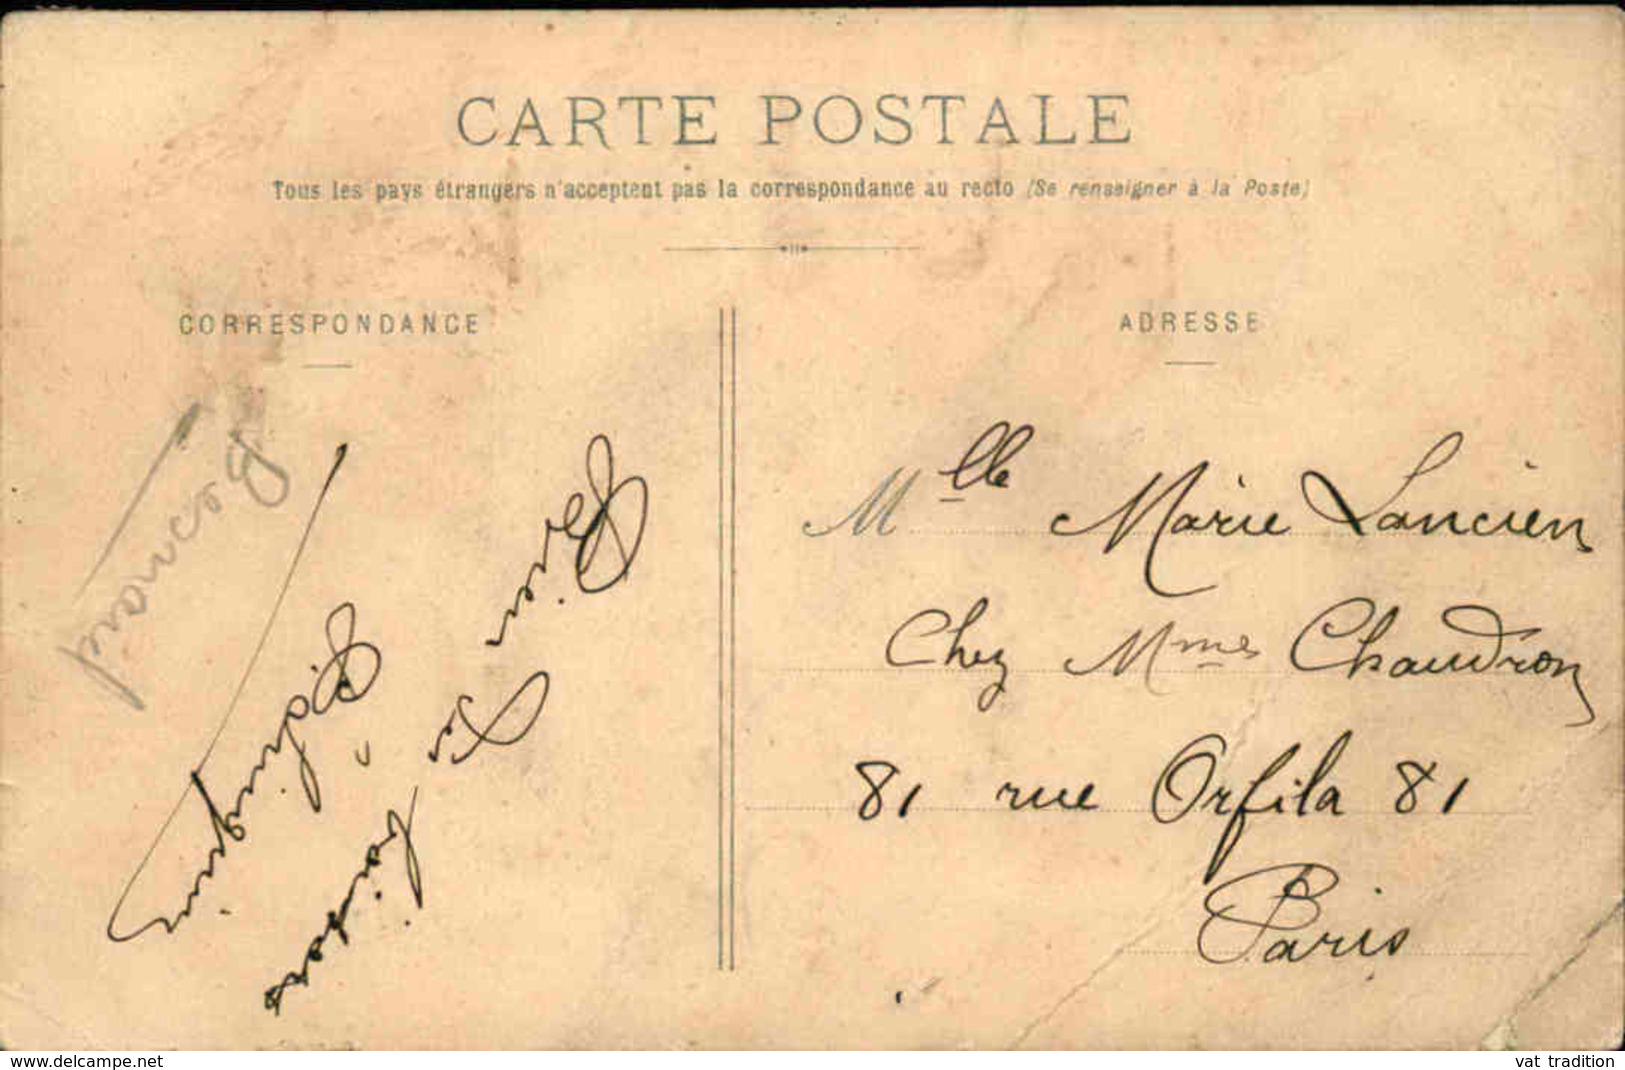 CARTE POSTALE
Tous les pays étrangers n'acceptent pas la correspondance au recto (Se renseigner à la Poste)
CORRESPONDANCE
ADRESSE
Bien des
baisers
Mlle Marie Lancien
Chez Mmes Chaudron
81 rue Orfila 81
Paris
www.delcampe.net
vat tradition